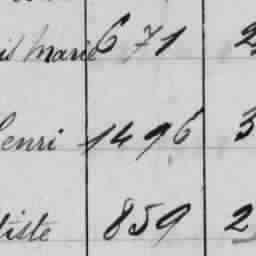 Marie 671 2
Henri 1496 3
tiste 859 2